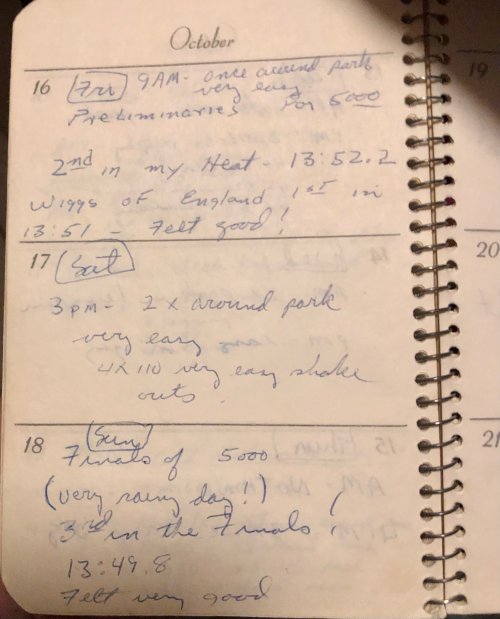 October
16 Fri 9AM- once around park
very easy
Preliminaries for 5000
2nd in my Heat - 13:52.2
Wiggs of England 1st in
13:51 - Felt good!
17 Sat
3pm- 2x around park
very easy
4x110 very easy shake
outs.
18 Sun
Finals of 5000
(very rainy day!)
3rd in the Finals!
13:49.8
Felt very good
19
20
21